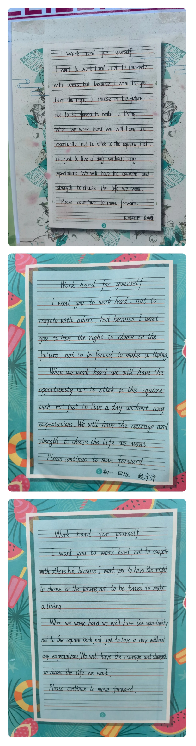 Work hard for yourself
I want you to work hard, not to compete
with others, but because I want you to
have the right to choose in the future
not to be forced to make a living.
When we work hard we will have the
opportunity not to stick to the square inch
not just to live a day without any
We will have the courage and
strength to choose the life we want.
Please continue to move forward.
Work hard for yourself
I want you to work hard, not to
compete with others, but because I want
you to have the right to choose in the
future, not to be forced to make a living.
When we work hard we will have the
opportunity not to stick to the square
inch not just to live a day without any
We will have the courage and
strength to choose the life we want.
Please continue to move forward.
Work hard for yourself
I want you to work hard, not to compete
with others, but because I want you to have the right
to choose in the future, not to be forced to make
a living.
When we work hard we will have
not to the square inch not just to live a day without
any We will have the courage and strength
to choose the life we want.
Please continue to move forward.